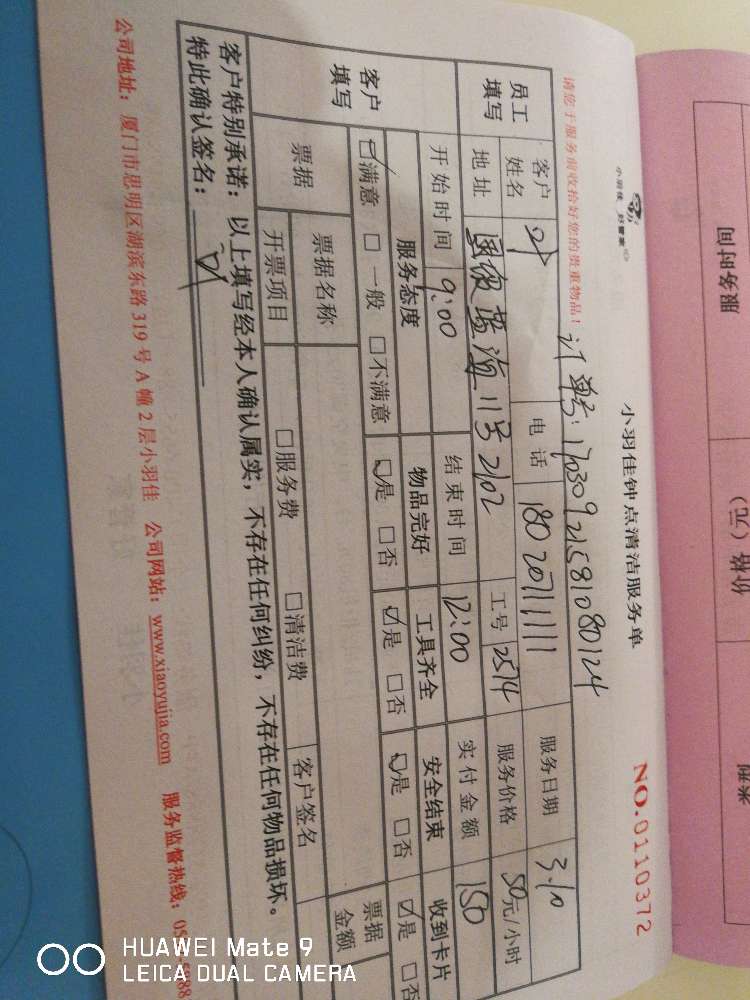 小羽佳 好管家
小羽佳钟点清洁服务单
NO.0110372
请您于服务前收拾好您的贵重物品!
订单号:17030921581080124
员工填写
客户姓名
电话 18020711111
服务日期 3.10
地址
蓝海11号2102
工号 2514
服务价格 50元/小时
开始时间 9:00
结束时间 12:00
实付金额 150
客户填写
服务态度
物品完好
工具齐全
安全结束
收到卡片
☑满意 □一般 □不满意
☑是 □否
☑是 □否
☑是 □否
☑是 □否
票据
票据名称
客户签名
票据金额
开票项目
□服务费 □清洁费
客户特别承诺:以上填写经本人确认属实,不存在任何纠纷,不存在任何物品损坏。
特此确认签名:
公司地址:厦门市思明区湖滨东路319号A幢2层小羽佳 公司网站:www.xiaoyujia.com 服务监督热线:
服务时间
价格(元)
HUAWEI Mate 9
LEICA DUAL CAMERA